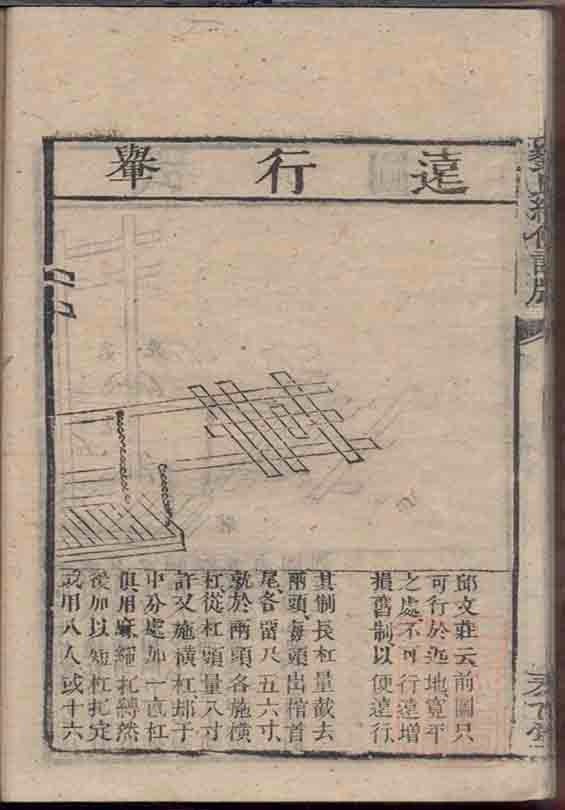 遠行轝
邱文莊云前圖只
可行於近地寛平
之處不可行遠增
損舊制以便遠行
其制長杠量截去
兩頭每頭出棺首
尾各留尺五六寸
就於兩頭各施橫
杠從杠頭量八寸
許又施橫杠埓于
中分處加一直杠
俱用麻繩扎縛然
後加以短杠扎定
或用八人或十六